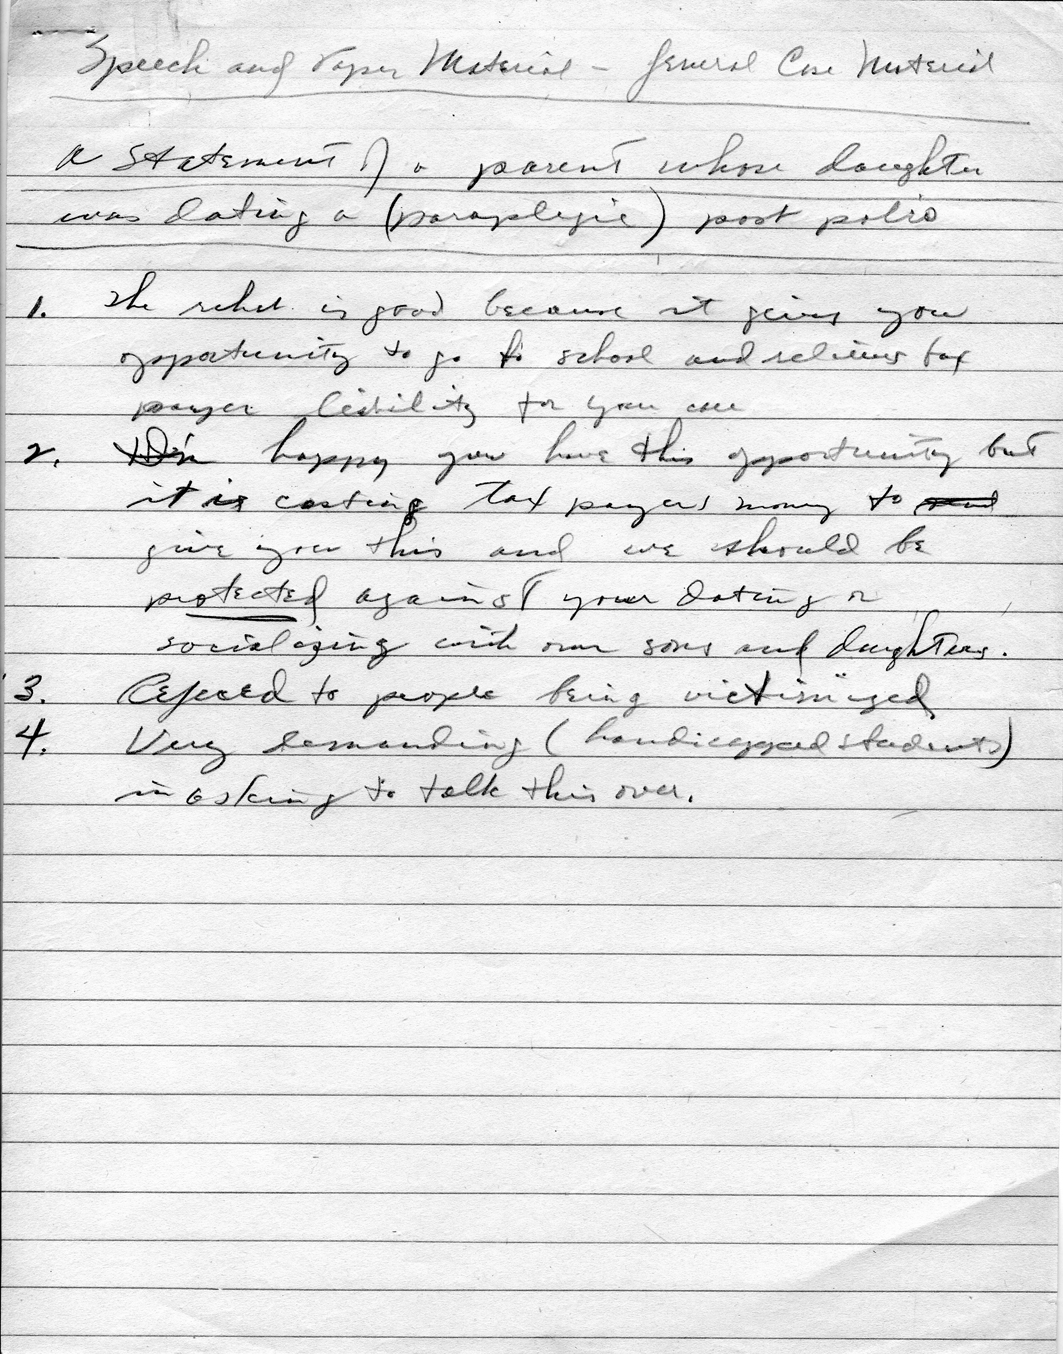 Speech and Paper Material - General Case Material
A Statement of a parent whose daughter
was dating a (paraplegic) post polio
1. The rehab. is good because it gives you
opportunity to go to school and relieves tax
payer liability for your care
2. I'm happy you have this opportunity but
it is costing tax payers money to
give you this and we should be
protected against your dating or
socializing with our sons and daughters.
3. to people being "victimized"
4. Very demanding (handicapped students)
in asking to talk this over.